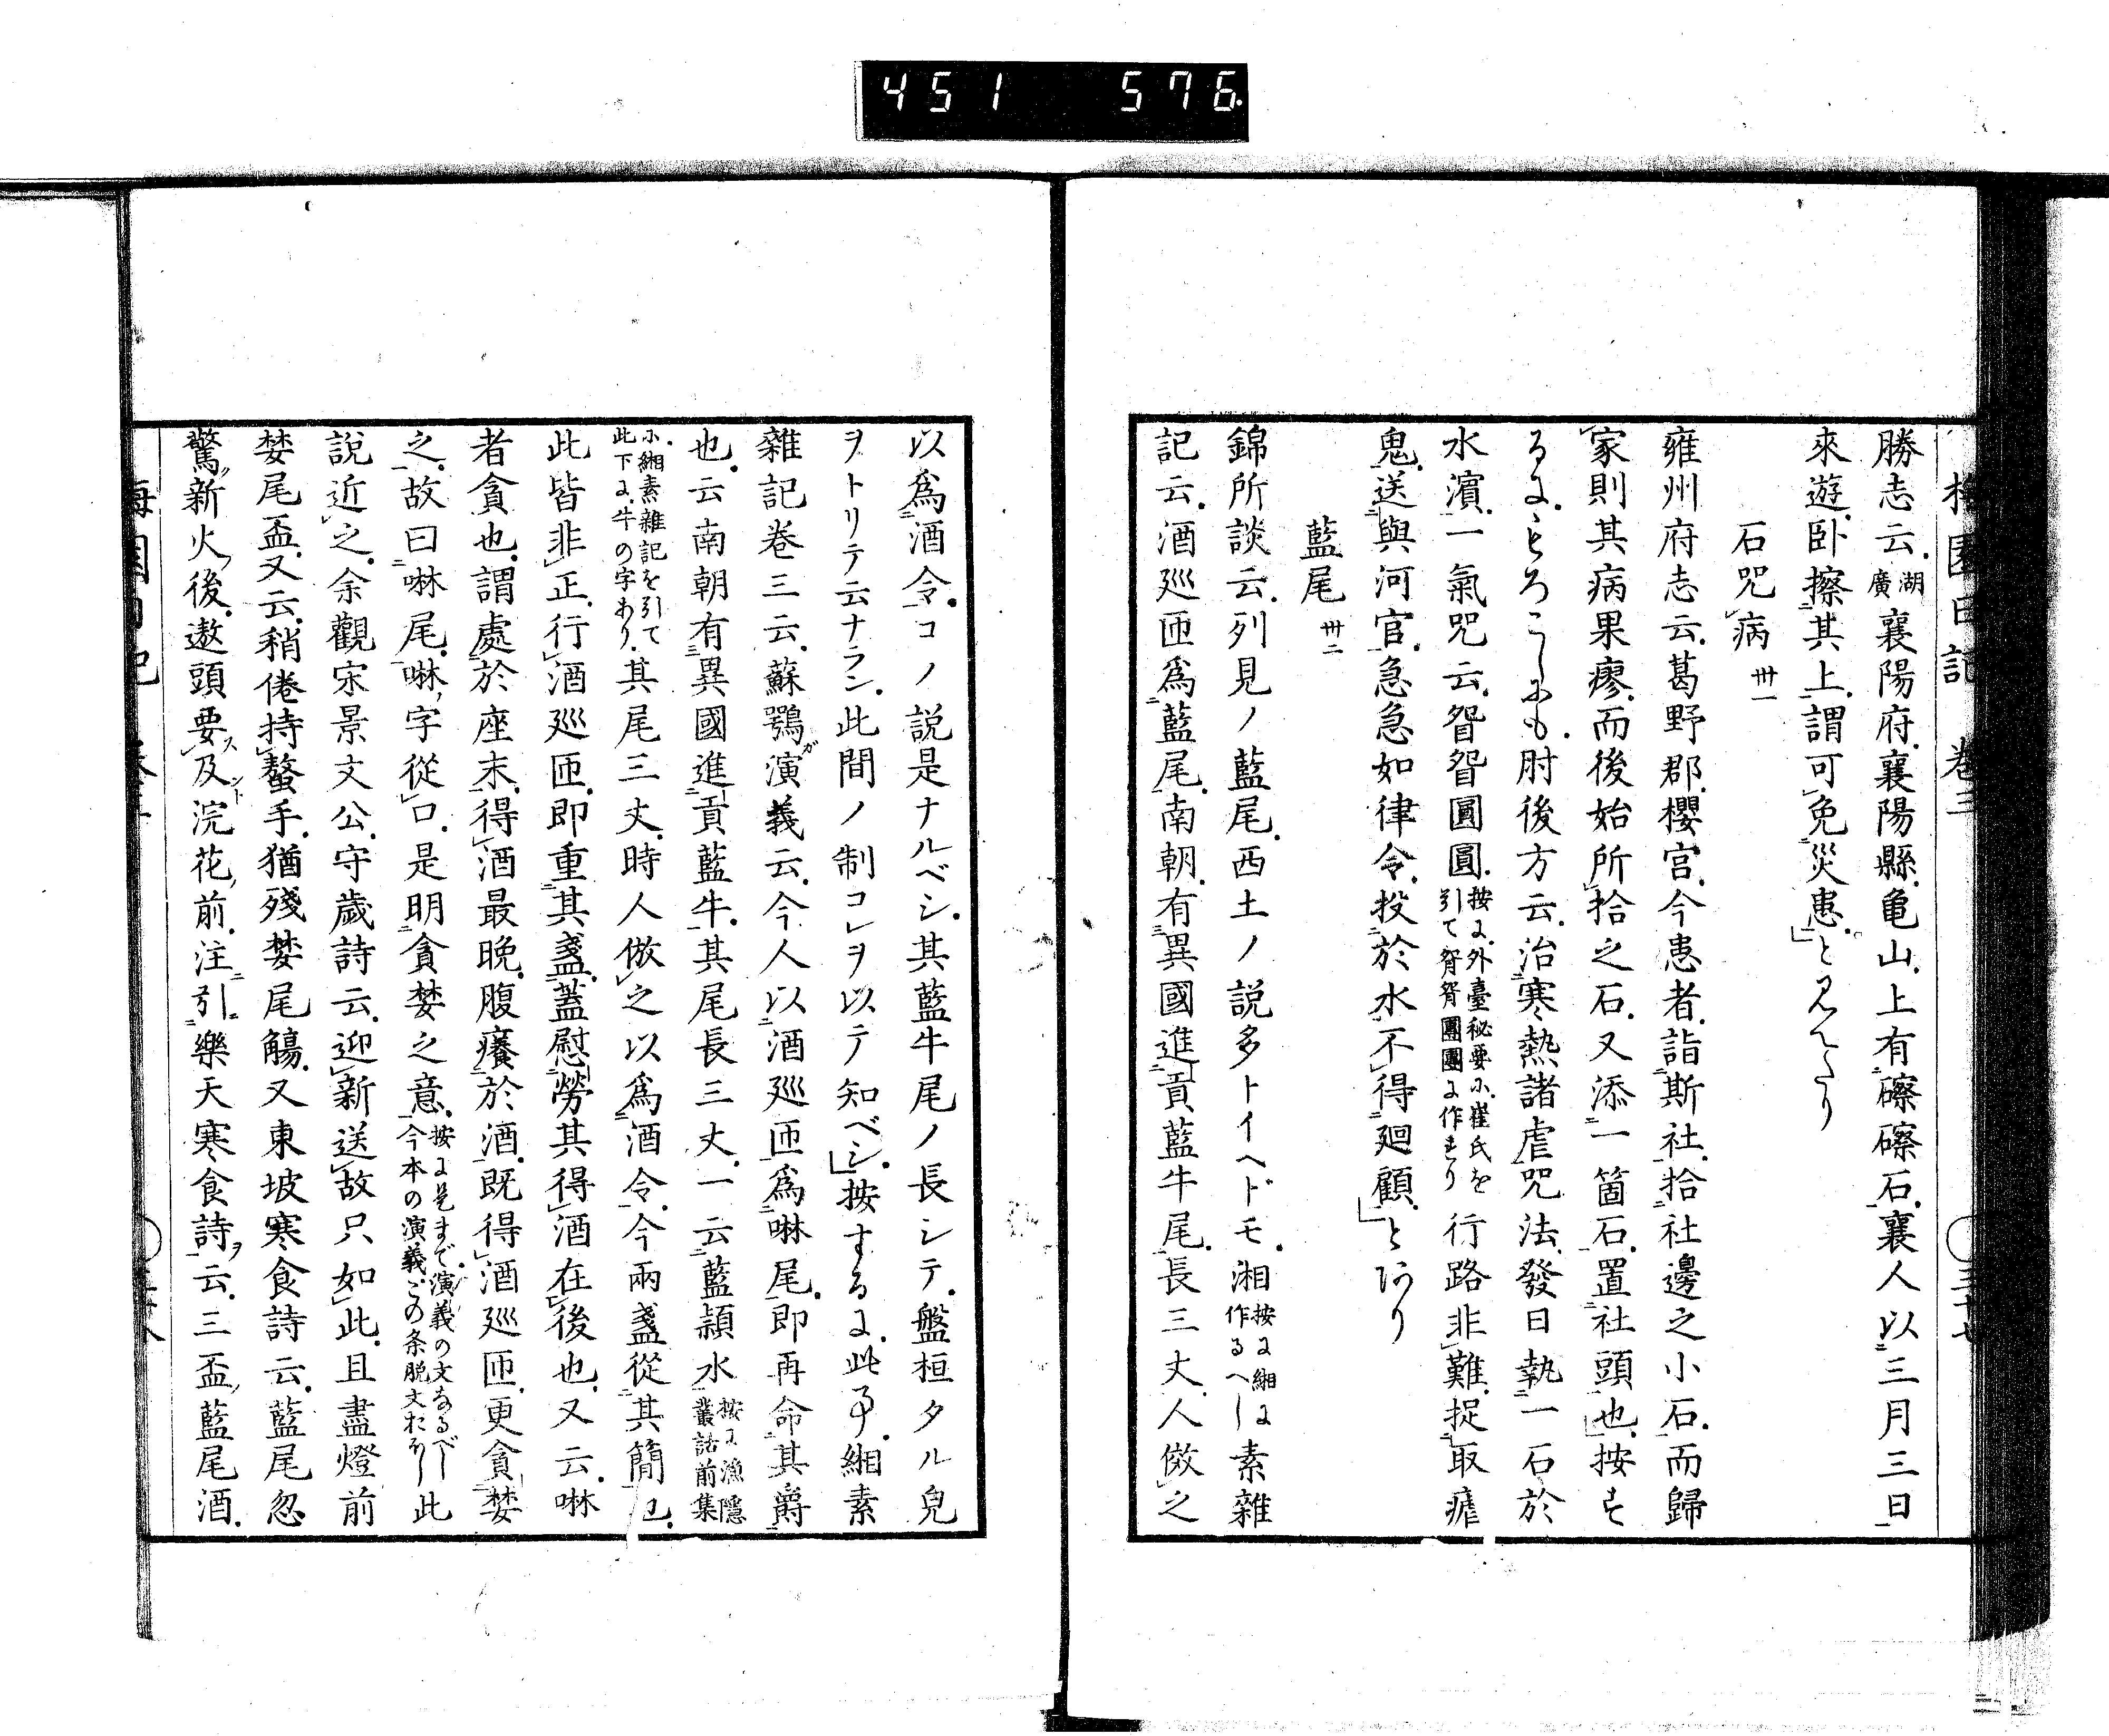 451 576
梅園日記 卷三
勝志云湖廣襄陽府襄陽縣亀山上有礤礤石襄人以三月三日
來遊卧擦其上謂可免災患」と見えたり
石咒病 卅一
雍州府志云葛野郡櫻宮今患者詣斯社拾社邊之小石而歸
家則其病果瘳而後始所拾之石又添一箇石置社頭也」按ず
るに、もろこしにも肘後方云治寒熱諸虐咒法發日執一石於
水濱一氣咒云眢眢圓圓按に外臺秘要に崔氏を引て眢眢團團に作れり行路非難捉取瘧
鬼送與河官急急如律令投於水不得廻顧」とあり
藍尾 卅二
錦所談云列見ノ藍尾西土ノ説多トイヘドモ湘按に緗に作るへし素雜
記云酒廵匝爲藍尾南朝有異國進貢藍牛尾長三丈人倣之
以爲酒令コノ説是ナルベシ其藍牛尾ノ長シテ盤桓タル皃
ヲトリテ云ナラン此間ノ制コレヲ以テ知ベシ」按するに此事緗素
雜記卷三云蘇鶚演義云今人以酒廵匝爲啉尾即再命其爵
也云南朝有異國進貢藍牛其尾長三丈一云藍頴水按に漁隱叢話前集
に緗素雜記を引て此下に牛の字あり其尾三丈時人倣之以爲酒令今兩盞從其簡也
此皆非正行酒廵匝即重其盞蓋慰勞其得酒在後也又云啉
者貪也謂處於座末得酒最晩腹癢於酒既得酒廵匝更貪婪
之故曰啉尾啉字從口是明貪婪之意按に是まで演義の文なるべし今本の演義この条脱文おほし此
說近之余觀宋景文公守歲詩云迎新送故只如此且盡燈前
婪尾盃又云稍倦持螯手猶殘婪尾觴又東坡寒食詩云藍尾忽
驚新火後遨頭要及浣花前注引樂天寒食詩云三盃藍尾酒